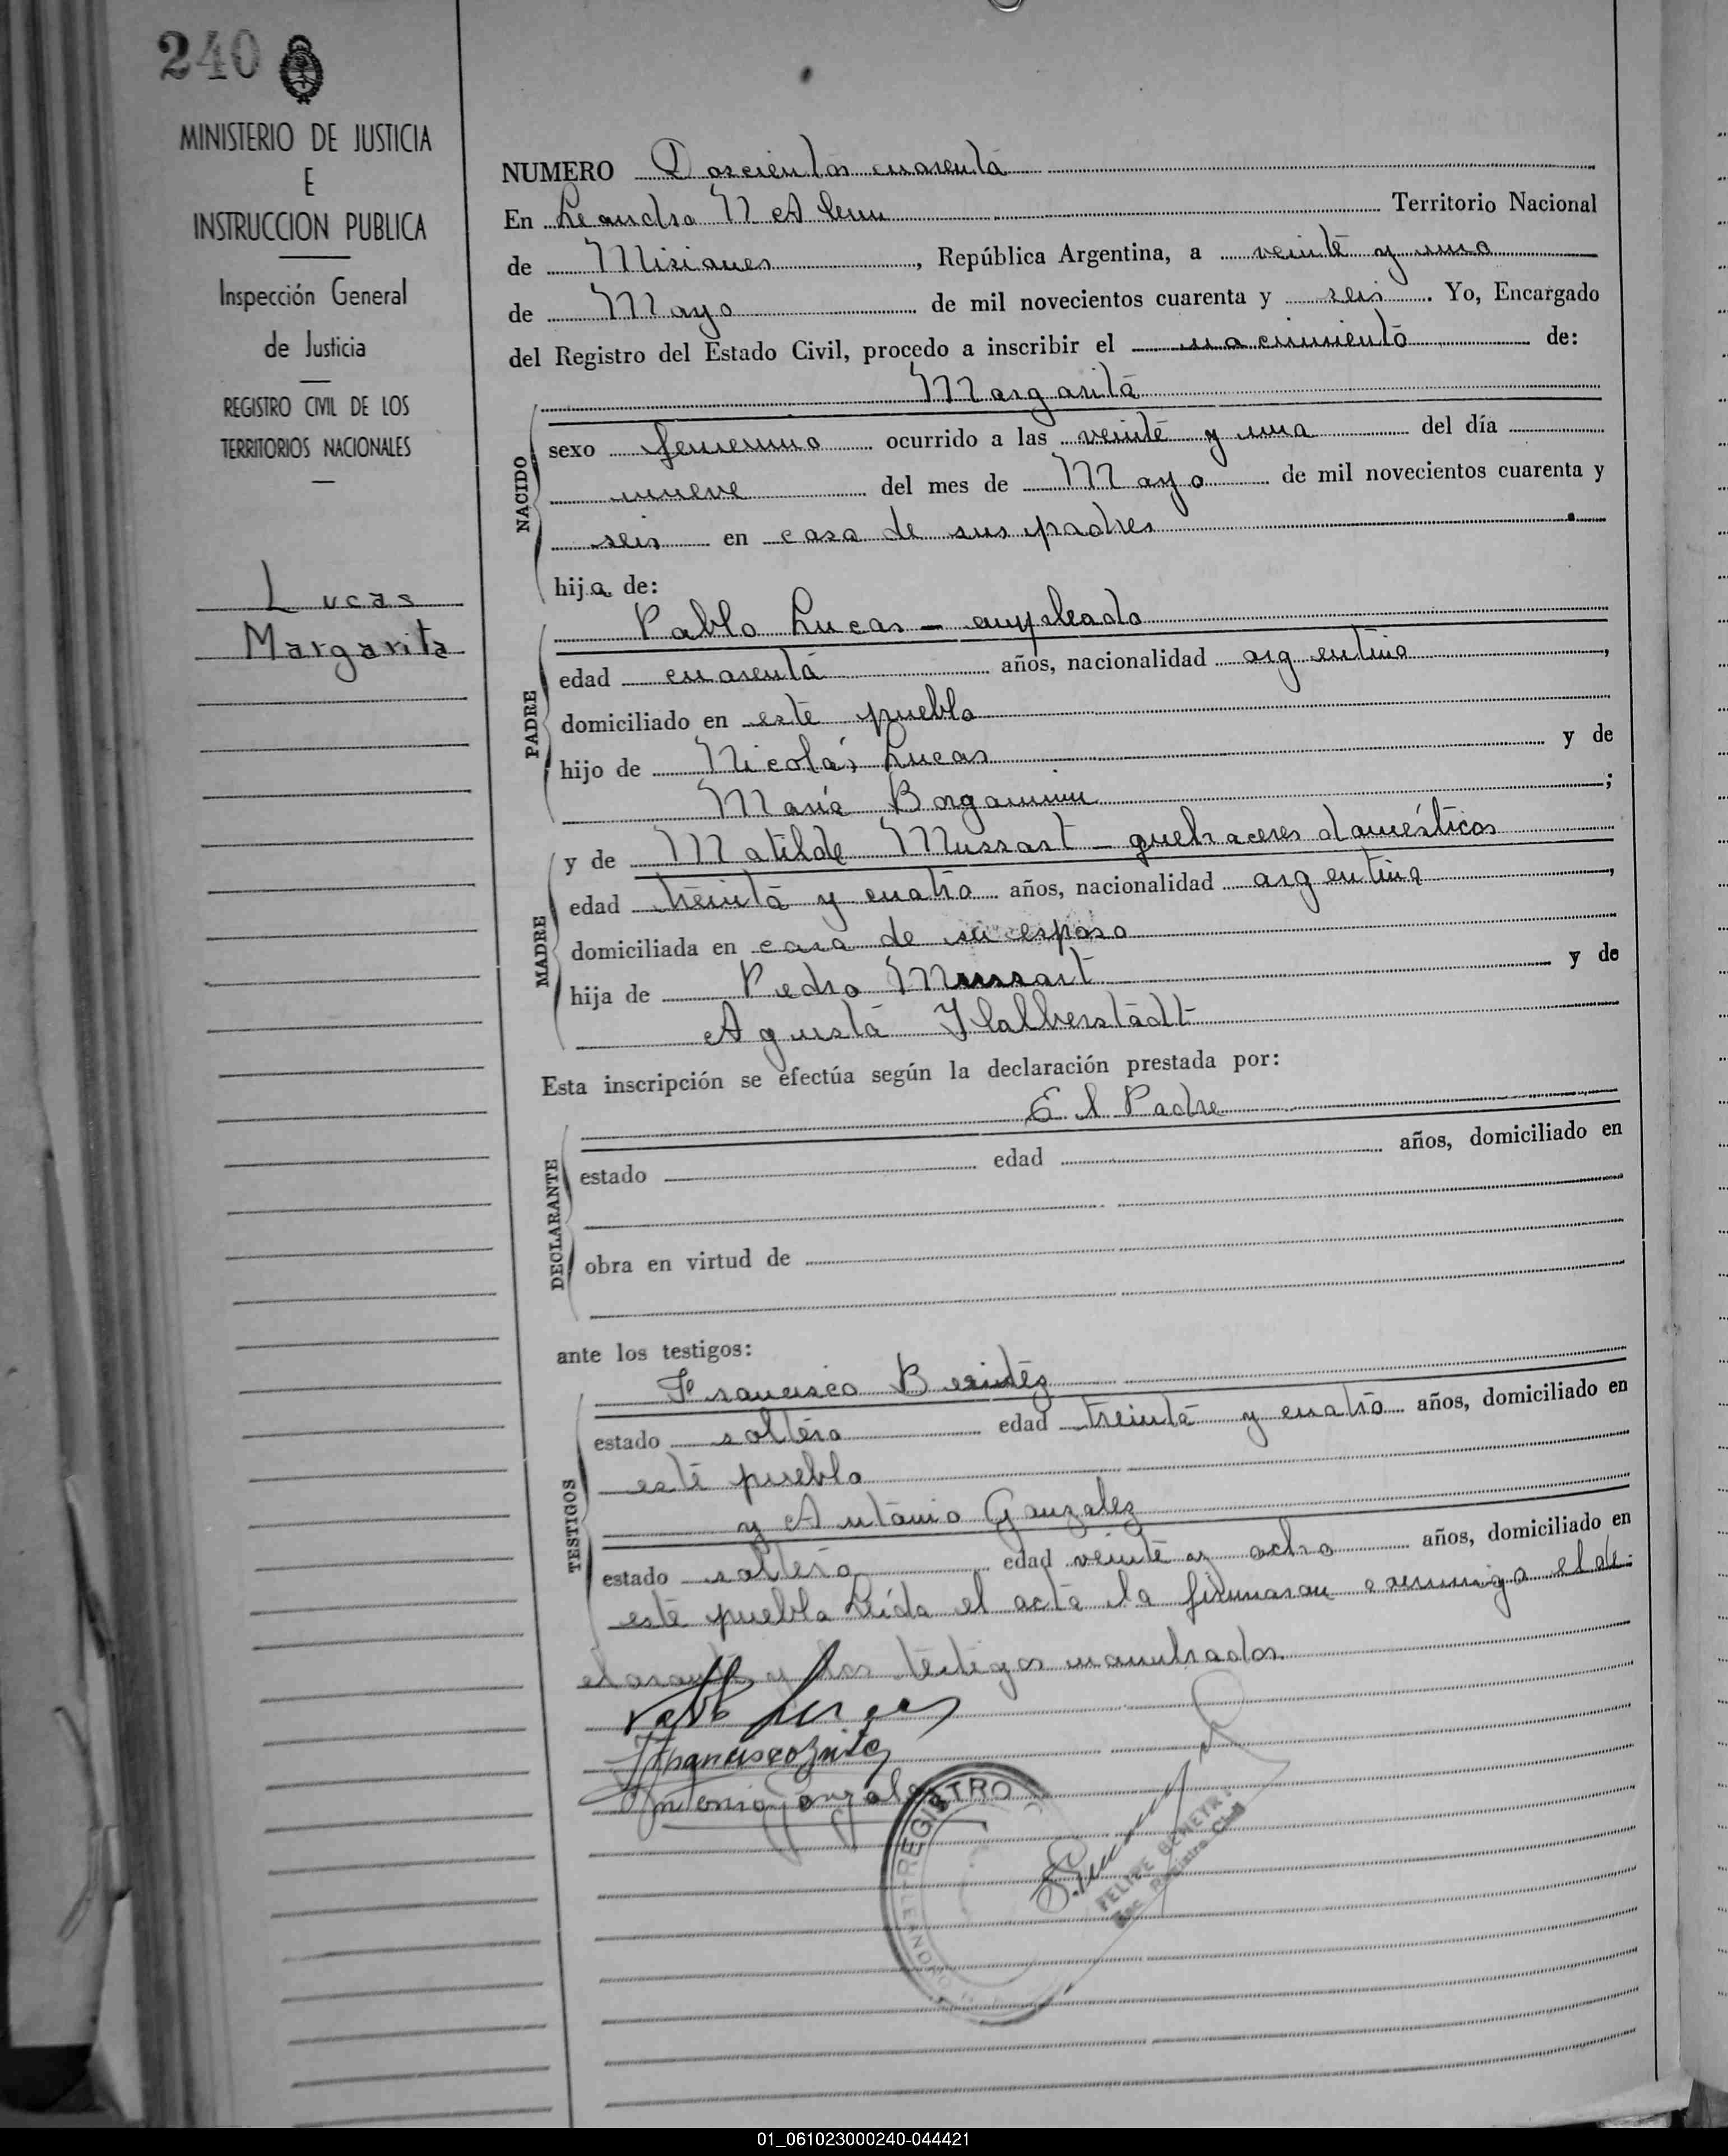 240
MINISTERIO DE JUSTICIA
E
INSTRUCCION PUBLICA
Inspección General
de Justicia
REGISTRO CIVIL DE LOS
TERRITORIOS NACIONALES
Lucas
Margarita
NUMERO Doscientos cuarenta
En Leandro N Alem Territorio Nacional
de Misiones, República Argentina, a veinte y uno
de Mayo de mil novecientos cuarenta y seis. Yo, Encargado
del Registro del Estado Civil, procedo a inscribir el nacimiento de:
Margarita
NACIDO
sexo femenino ocurrido a las veinte y una del día
nueve del mes de Mayo de mil novecientos cuarenta y
seis en casa de sus padres
hija de:
PADRE
Pablo Lucas - empleado
edad cuarenta años, nacionalidad argentino,
domiciliado en este pueblo
hijo de Nicolás Lucas y de
María ;
MADRE
y de Matilde Mussart - quehaceres domésticos
edad treinta y cuatro años, nacionalidad argentina,
domiciliada en casa de su esposo
hija de Pedro Mussart y de
Agusta Halberstadt
Esta inscripción se efectúa según la declaración prestada por:
El Padre
DECLARANTE
estado edad años, domiciliado en
obra en virtud de
ante los testigos:
TESTIGOS
Francisco Benitez
estado soltero edad treinta y cuatro años, domiciliado en
este pueblo
y Antonio Gonzalez
estado soltero edad veinte y ocho años, domiciliado en
este pueblo Leída el acta la firmaron conmigo el de-
clarante y los testigos nombrados.
Pablo Lucas
Francisco
Antonio Gonzalez
REGISTRO
FELIPE
Enc. Registro Civil
01_061023000240-044421